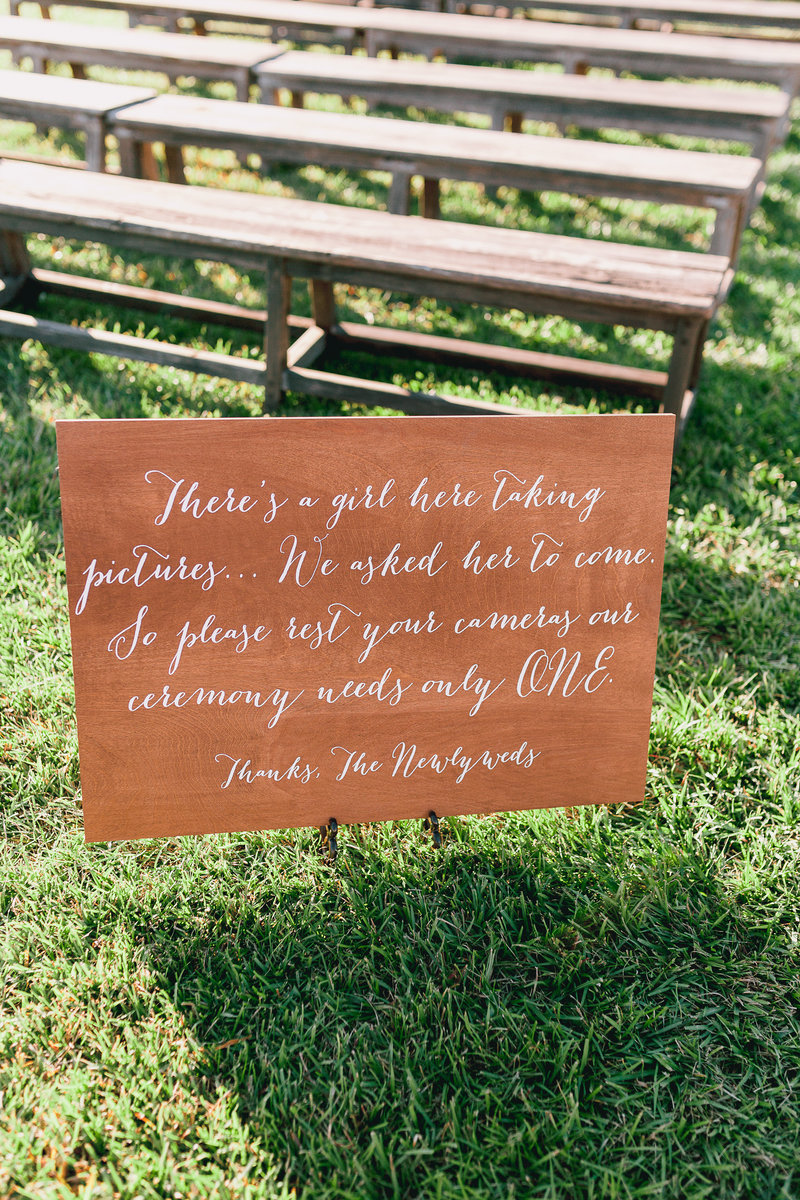 There's a girl here taking
pictures... We asked her to come.
So please rest your cameras our
ceremony needs only ONE.
Thanks, The Newlyweds